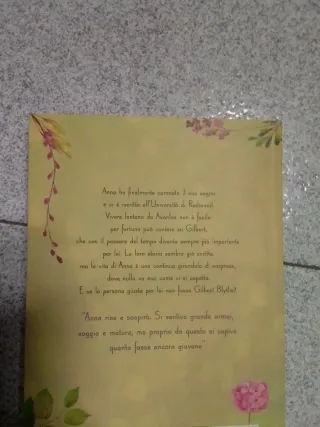 Anna ha finalmente coronato il suo sogno
e si è iscritta all'Università di Redmond.
Vivere lontano da Avonlea non è facile:
per fortuna può contare su Gilbert,
che con il passare del tempo diventa sempre più importante
per lei. La loro storia sembra già scritta,
ma la vita di Anna è una continua girandola di sorprese,
dove nulla va mai come ci si aspetta.
E se la persona giusta per lei non fosse Gilbert Blythe?
"Anna rise e sospirò. Si sentiva grande ormai,
saggia e matura, ma proprio da questo si capiva
quanto fosse ancora giovane"